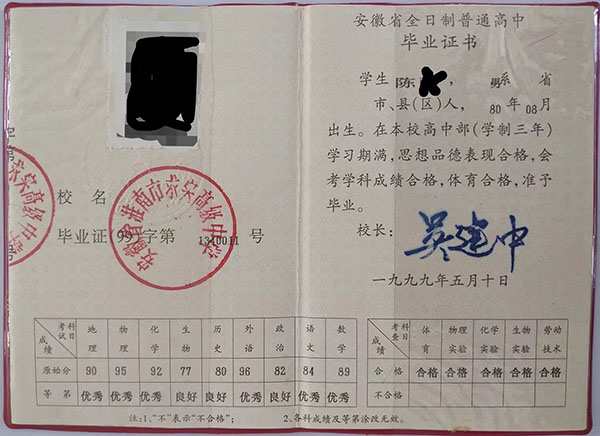 校名
毕业证(99)字第1310011号
考试科目 地理 物理 化学 生物 历史 外语 政治 语文 数学
成绩
原始分 90 95 92 77 80 96 82 84 89
等第 优秀 优秀 优秀 良好 良好 优秀 良好 优秀 优秀
注:1、“不”表示“不合格”; 2、各科成绩及等第涂改无效。
安徽省全日制普通高中
毕业证书
学生 陈 , 男 系 省
市、县(区)人, 80年08月
出生。在本校高中部(学制三年)
学习期满,思想品德表现合格,会
考学科成绩合格,体育合格,准予
毕业。
校长: 吴建中
一九九九年五月十日
考查科目 体育 物理实验 化学实验 生物实验 劳动技术
成绩
合格 合格 合格 合格 合格 合格
不合格